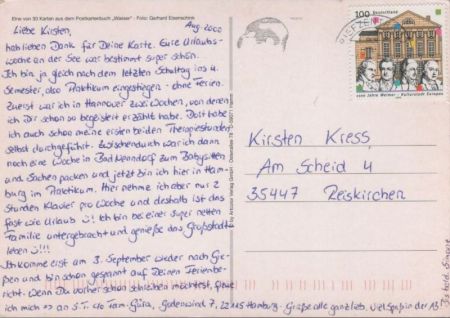 Eine von 30 Karten aus dem Postkartenbuch „Wasser“ · Foto: Gerhard Eisenschink
Aug. 2000
Liebe Kirsten,
hab lieben Dank für Deine Karte. Eure Urlaubs-
woche an der See war bestimmt super schön.
Ich bin ja gleich nach dem letzten Schultag ins 4.
Semester, also Praktikum eingestiegen - ohne Ferien.
Zuerst war ich in Hannover zwei Wochen, von denen
ich Dir schon so begeistert erzählt habe. Dort habe
ich auch schon meine ersten beiden Therapiestunden
selbst durchgeführt. Zwischendurch war ich dann
noch eine Woche in Bad Nenndorf zum Babysitten
und Sachen packen und jetzt bin ich hier in Ham-
burg im Praktikum. Hier nehme ich aber nur 2
Stunden Klavier pro Woche und deshalb ist das
fast wie Urlaub !! Ich bin bei einer super netten
Familie untergebracht und genieße das Großstadt-
leben !!!
Ich komme erst am 3. September wieder nach Gie-
ßen und bin schon gespannt auf Deinen Ferienbe-
richt. Wenn Du vorher schon schreiben möchtest, freue
ich mich => an S.T. c/o Fam. 7, 22145 Hamburg. Grüße alle ganz lieb, viel Spaß in der AS
100
Deutschland
1100 Jahre Weimar - Kulturstadt Europas
Kirsten Kress
Am Scheid 4
35447 Reiskirchen